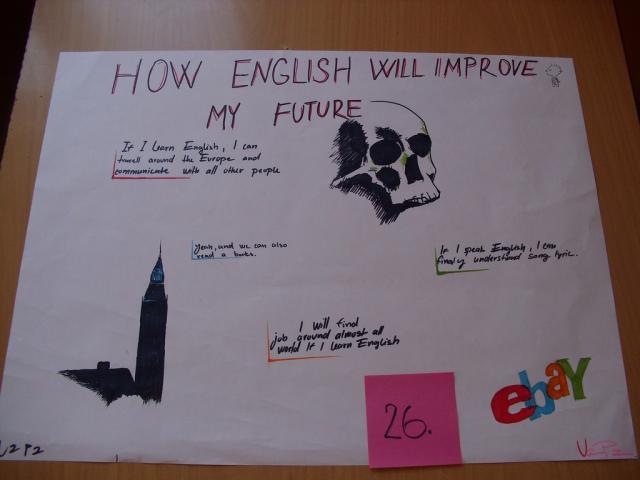 HOW ENGLISH WILL IMPROVE
MY FUTURE
If I learn English, I can
travell around the Europe and
communicate with all other people
Yeah, and we can also
read a books.
If I speak English, I can
finaly understand song lyric.
I will find
job around almost all
world If I learn English
ebay
26.